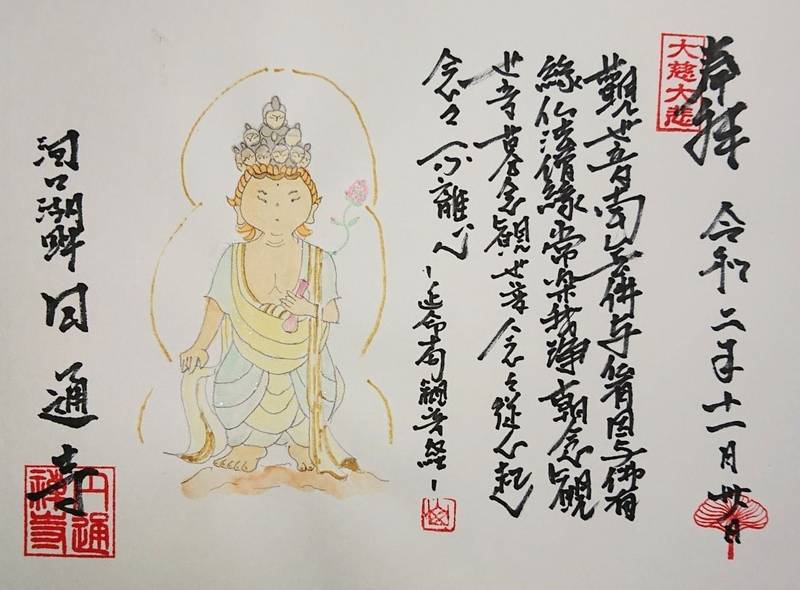 大慈大悲
奉拝 令和二年十一月廿日
観世音南無佛与仏有因与佛有
縁仏法僧縁常楽我浄朝念観
世音暮念観世音念々従心起
念々不離心 -延命十句観音経-
河口湖畔 円通寺
円通
禅寺